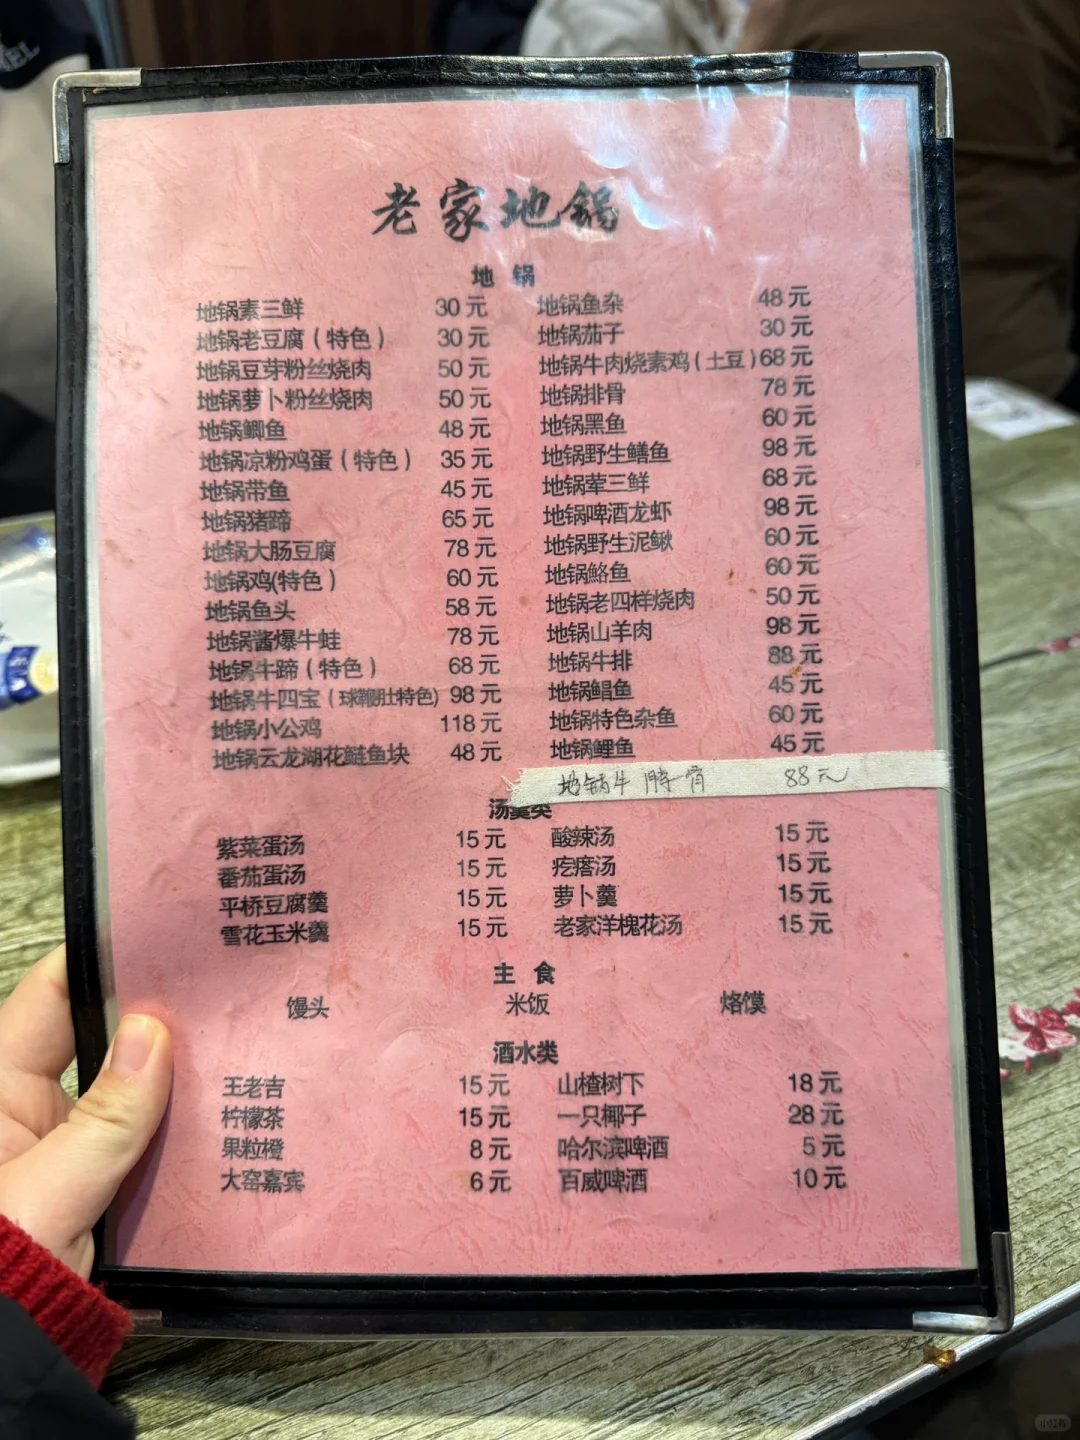 老家地锅
地 锅
地锅素三鲜 30元 地锅鱼杂 48元
地锅老豆腐（特色） 30元 地锅茄子 30元
地锅豆芽粉丝烧肉 50元 地锅牛肉烧素鸡（土豆）68元
地锅萝卜粉丝烧肉 50元 地锅排骨 78元
地锅鲫鱼 48元 地锅黑鱼 60元
地锅凉粉鸡蛋（特色） 35元 地锅野生鳝鱼 98元
地锅带鱼 45元 地锅荤三鲜 68元
地锅猪蹄 65元 地锅啤酒龙虾 98元
地锅大肠豆腐 78元 地锅野生泥鳅 60元
地锅鸡(特色） 60元 地锅鮥鱼 60元
地锅鱼头 58元 地锅老四样烧肉 50元
地锅酱爆牛蛙 78元 地锅山羊肉 98元
地锅牛蹄（特色） 68元 地锅牛排 88元
地锅牛四宝 98元 地锅鲳鱼 45元
地锅小公鸡 118元 地锅特色杂鱼 60元
地锅云龙湖花鲢鱼块 48元 地锅鲤鱼 45元
地锅牛脖骨 88元
汤羹类
紫菜蛋汤 15元 酸辣汤 15元
番茄蛋汤 15元 疙瘩汤 15元
平桥豆腐羹 15元 萝卜羹 15元
雪花玉米羹 15元 老家洋槐花汤 15元
主 食
馒头 米饭 烙馍
酒水类
王老吉 15元 山楂树下 18元
柠檬茶 15元 一只椰子 28元
果粒橙 8元 哈尔滨啤酒 5元
大窑嘉宾 6元 百威啤酒 10元
小红书